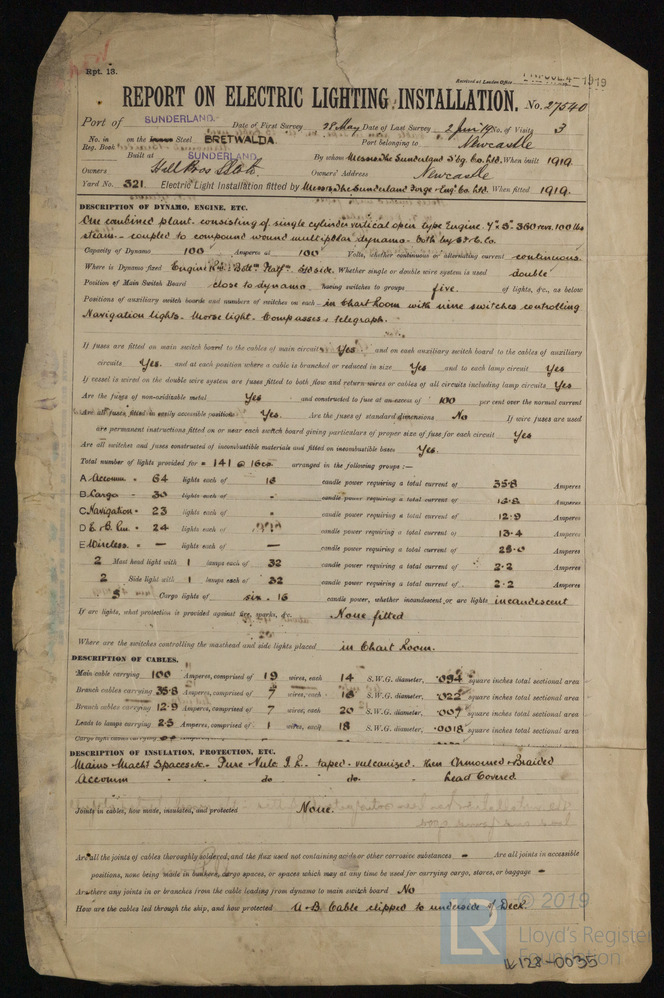 Rpt. 13.
Received at London Office 4-1919
REPORT ON ELECTRIC LIGHTING INSTALLATION. No. 27540
Port of SUNDERLAND. Date of First Survey 28 May Date of Last Survey 2 June 19 No. of Visits 3
No. in Reg. Book on the Steel BRETWALDA. Port belonging to Newcastle
Built at SUNDERLAND By whom Messrs The Sunderland S'bg. Co. Ltd. When built 1919.
Owners Hall Bros Owners' Address Newcastle
Yard No. 321 Electric Light Installation fitted by Messrs The Sunderland Forge & Eng. Co. Ltd. When fitted 1919.
DESCRIPTION OF DYNAMO, ENGINE, ETC.
One combined plant consisting of single cylinder vertical open type Engine 7" x 5" 360 revs. 100 lbs
steam - coupled to compound wound multipolar dynamo. both by S.F. & E. Co.
Capacity of Dynamo 100 Amperes at 100 Volts, whether continuous or alternating current continuous.
Where is Dynamo fixed Engine Whether single or double wire system is used double
Position of Main Switch Board close to dynamo having switches to groups five of lights, &c., as below
Positions of auxiliary switch boards and numbers of switches on each - in Chart Room with nine switches controlling
Navigation lights. Morse light. Compasses & telegraph.
If fuses are fitted on main switch board to the cables of main circuit Yes and on each auxiliary switch board to the cables of auxiliary
circuits Yes. and at each position where a cable is branched or reduced in size Yes and to each lamp circuit Yes
If vessel is wired on the double wire system are fuses fitted to both flow and return wires or cables of all circuits including lamp circuits Yes
Are the fuses of non-oxidizable metal Yes and constructed to fuse at an excess of 100 per cent over the normal current
Are all fuses fitted in easily accessible positions Yes. Are the fuses of standard dimensions No If wire fuses are used
are permanent instructions fitted on or near each switch board giving particulars of proper size of fuse for each circuit Yes
Are all switches and fuses constructed of incombustible materials and fitted on incombustible bases Yes.
Total number of lights provided for 141 @ 16 c.p. arranged in the following groups :—
A Accomm. 64 lights each of 16 candle power requiring a total current of 35.8 Amperes
B Cargo 30 lights each of " candle power requiring a total current of 16.8 Amperes
C Navigation 23 lights each of " candle power requiring a total current of 12.9 Amperes
D E. & B. Rm. 24 lights each of " candle power requiring a total current of 13.4 Amperes
E Wireless. — lights each of — candle power requiring a total current of 25.0 Amperes
2 Mast head light with 1 lamps each of 32 candle power requiring a total current of 2.2 Amperes
2 Side light with 1 lamps each of 32 candle power requiring a total current of 2.2 Amperes
5 Cargo lights of six - 16 candle power, whether incandescent or arc lights incandescent
If arc lights, what protection is provided against fire, sparks, &c. None fitted
Where are the switches controlling the masthead and side lights placed in Chart Room.
DESCRIPTION OF CABLES.
Main cable carrying 100 Amperes, comprised of 19 wires, each 14 S.W.G. diameter, .094 square inches total sectional area
Branch cables carrying 35.8 Amperes, comprised of 7 wires, each 16 S.W.G. diameter, .022 square inches total sectional area
Branch cables carrying 12.9 Amperes, comprised of 7 wires, each 20 S.W.G. diameter, .007 square inches total sectional area
Leads to lamps carrying 2.5 Amperes, comprised of 1 wires, each 18 S.W.G. diameter, .0018 square inches total sectional area
Cargo light cables carrying
DESCRIPTION OF INSULATION, PROTECTION, ETC.
Mains Mach'y Spaces etc. - Pure Vulc. I.R. - taped - vulcanised. then Armoured & Braided
Accomm " " do do. Lead Covered.
Joints in cables, how made, insulated, and protected None.
Are all the joints of cables thoroughly soldered, and the flux used not containing acids or other corrosive substances - Are all joints in accessible
positions, none being made in bunkers, cargo spaces, or spaces which may at any time be used for carrying cargo, stores, or baggage -
Are there any joints in or branches from the cable leading from dynamo to main switch board No
How are the cables led through the ship, and how protected A & B Cable clipped to underside of Deck.
LR
© 2019
Lloyd's Register
Foundation
W122-0035